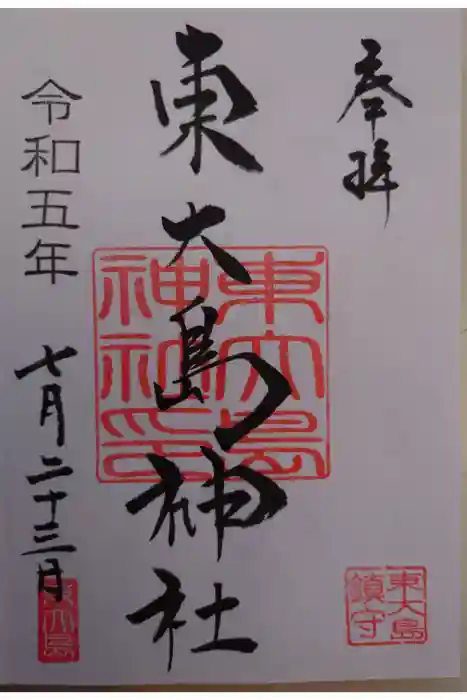 奉拝
東大島神社
令和五年
七月二十三日
東大島
神社印
東大島
鎮守
東大島